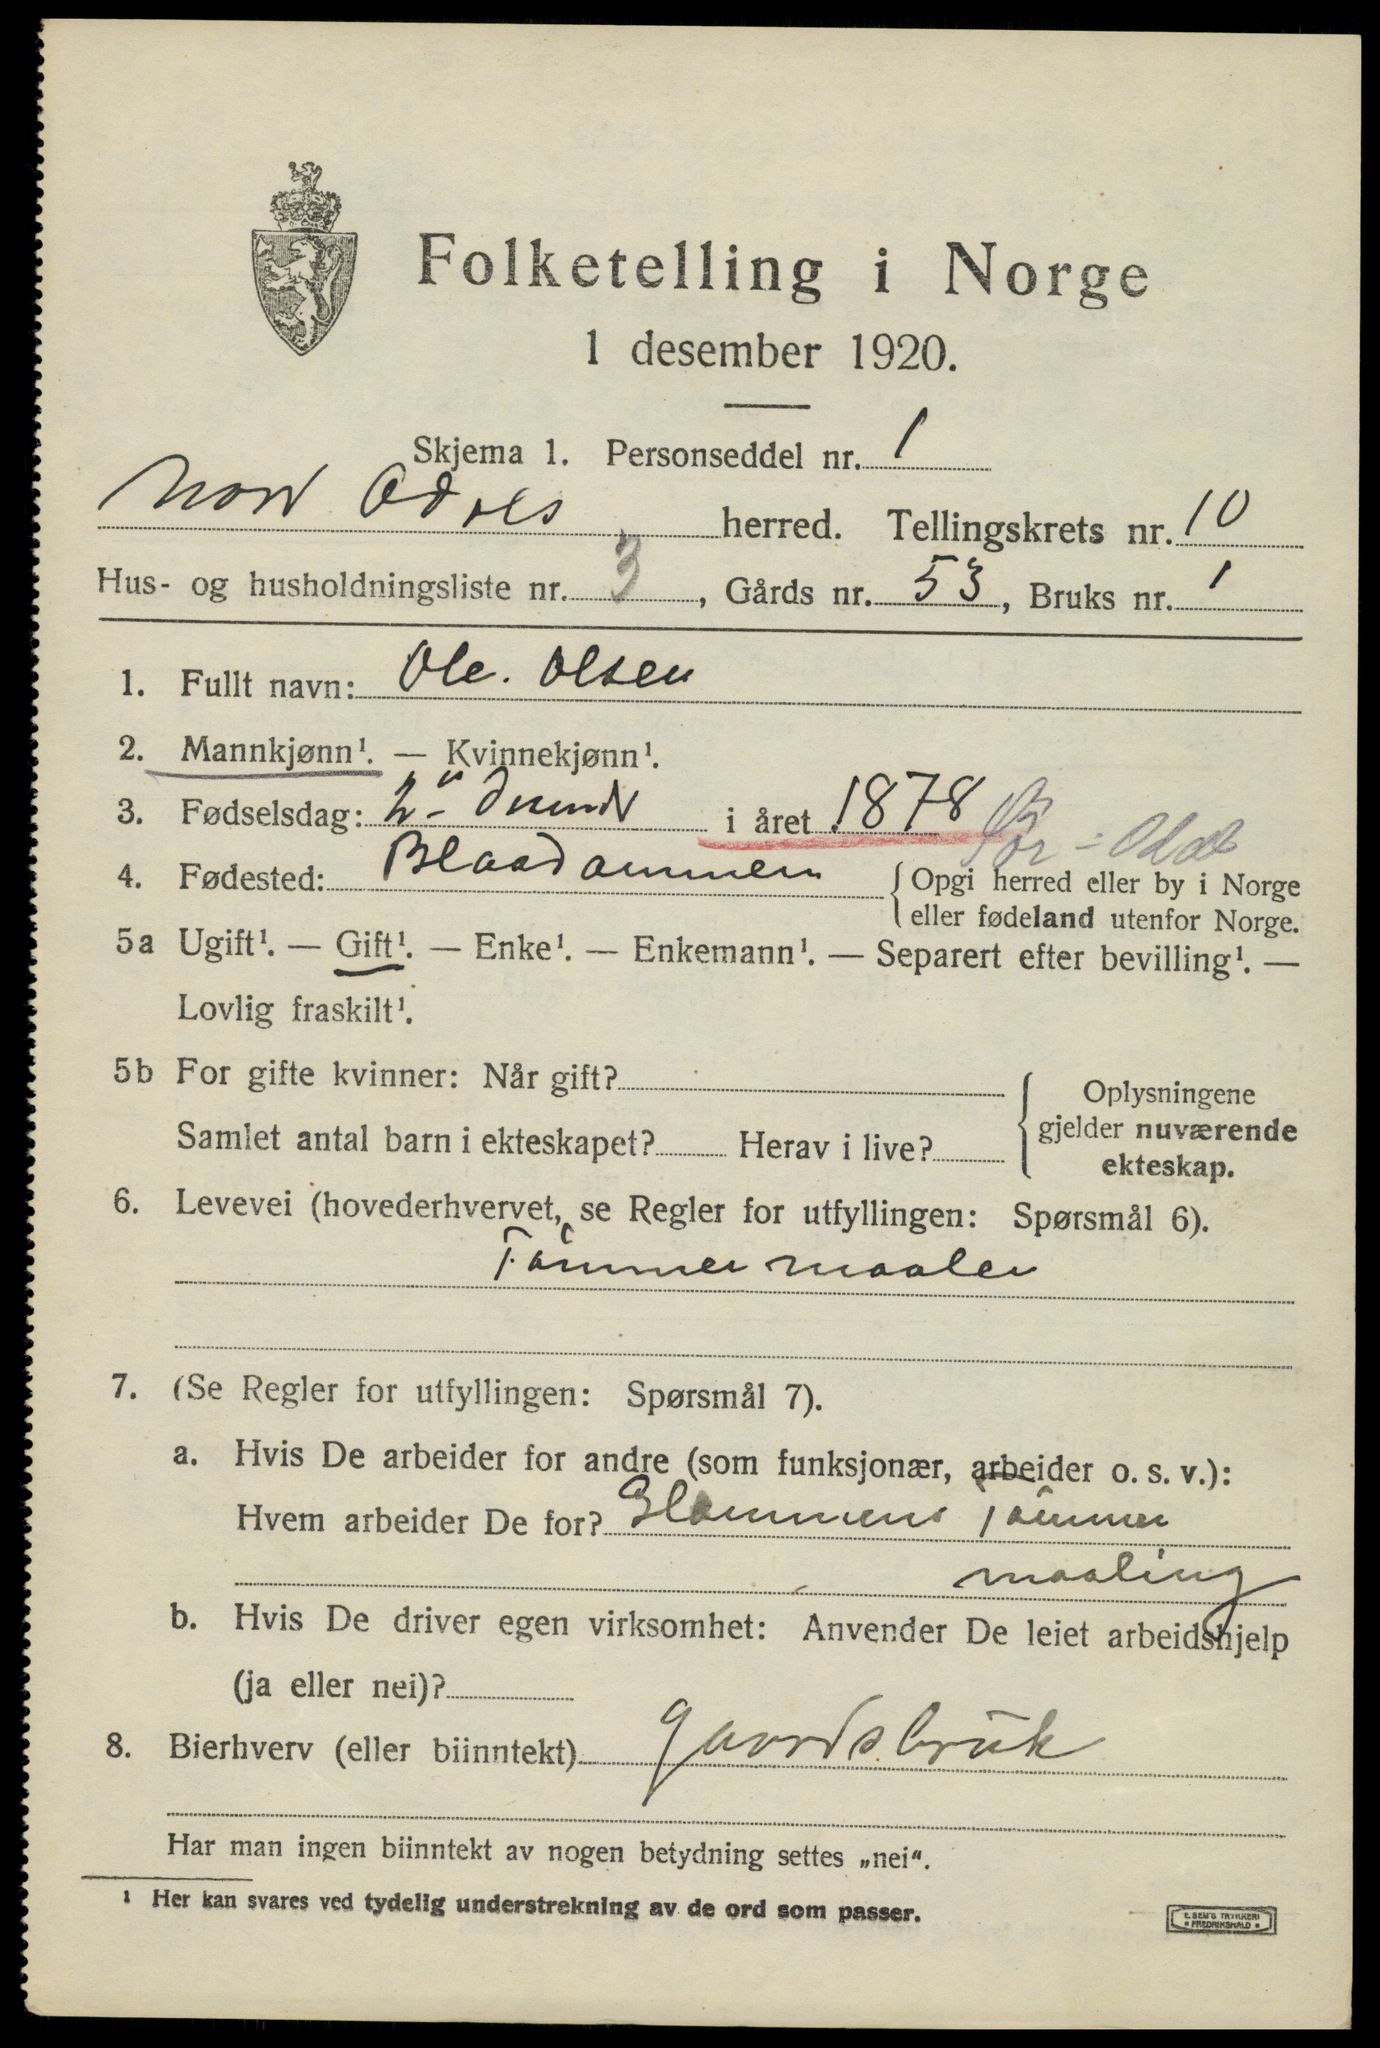 Folketelling i Norge
1 desember 1920.
Skjema 1. Personseddel nr. 1
Nord Odals herred. Tellingskrets nr. 10
Hus- og husholdningsliste nr. 3, Gårds nr. 53, Bruks nr. 1
1. Fullt navn: Ole. Olsen
2. Mannkjønn¹. — Kvinnekjønn¹.
3. Fødselsdag: 2 i året 1878
4. Fødested: Blaadammen { Opgi herred eller by i Norge
eller fødeland utenfor Norge.
5a Ugift¹. — Gift¹. — Enke¹. — Enkemann¹. — Separert efter bevilling¹. —
Lovlig fraskilt¹.
5b For gifte kvinner: Når gift?
Samlet antal barn i ekteskapet? Herav i live?
Oplysningene
gjelder nuværende
ekteskap.
6. Levevei (hovederhvervet, se Regler for utfyllingen: Spørsmål 6).
Tømmer maaler
7. (Se Regler for utfyllingen: Spørsmål 7).
a. Hvis De arbeider for andre (som funksjonær, arbeider o. s. v.):
Hvem arbeider De for? Glommens Tømmer
maaling
b. Hvis De driver egen virksomhet: Anvender De leiet arbeidshjelp
(ja eller nei)?
8. Bierhverv (eller biinntekt) gaardsbruk
Har man ingen biinntekt av nogen betydning settes „nei“.
1 Her kan svares ved tydelig understrekning av de ord som passer.
E. SEM'S TRYKKERI
FREDRIKSHALD